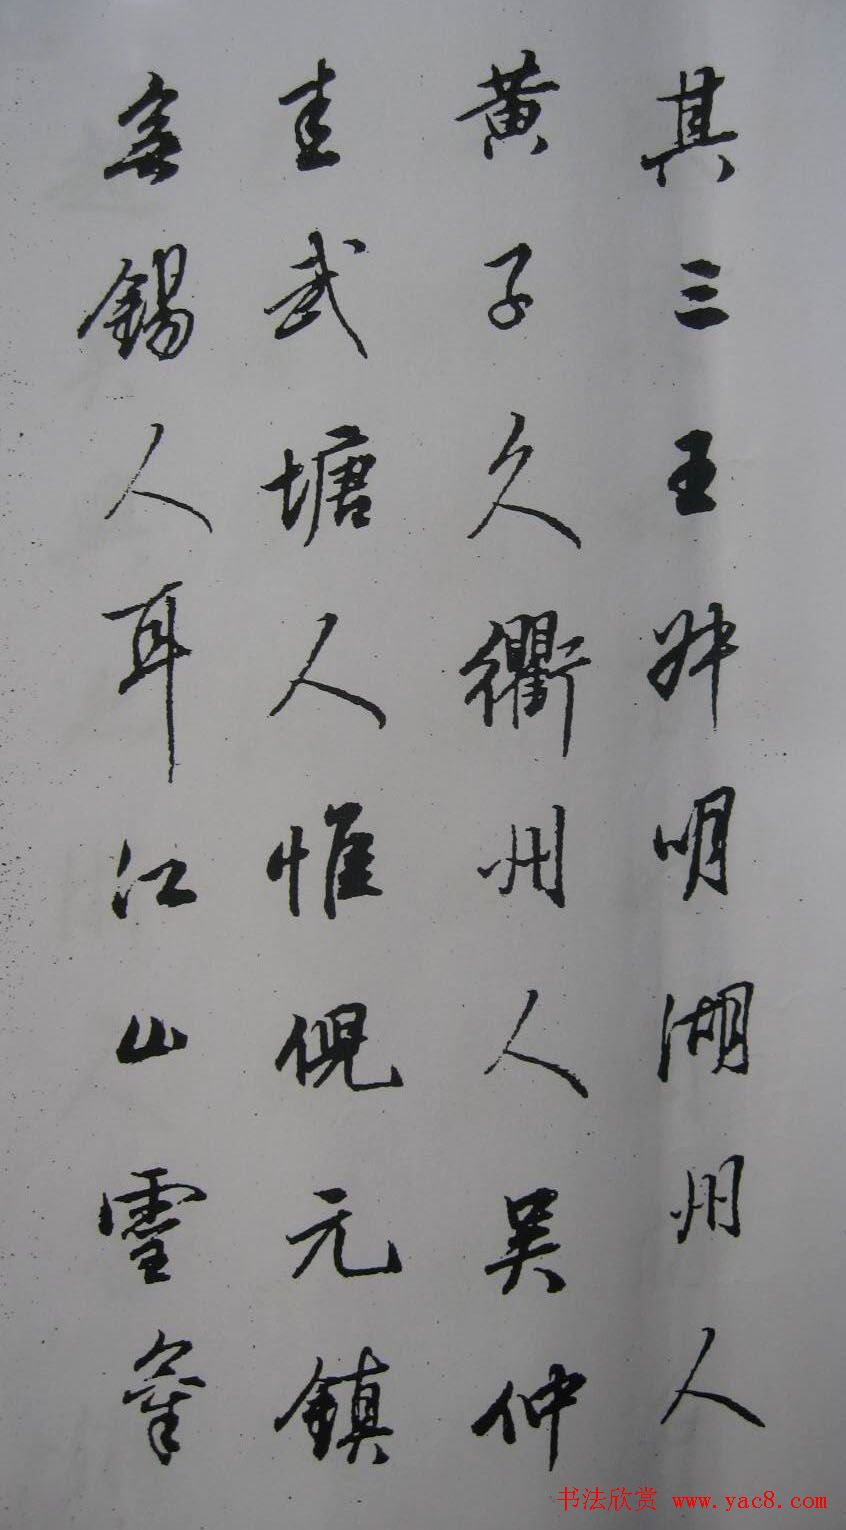 其三王叔明湖州人
黄子久衢州人吴仲
圭武塘人惟倪元鎮
無錫人耳江山靈氣
书法欣赏 www.yac8.com